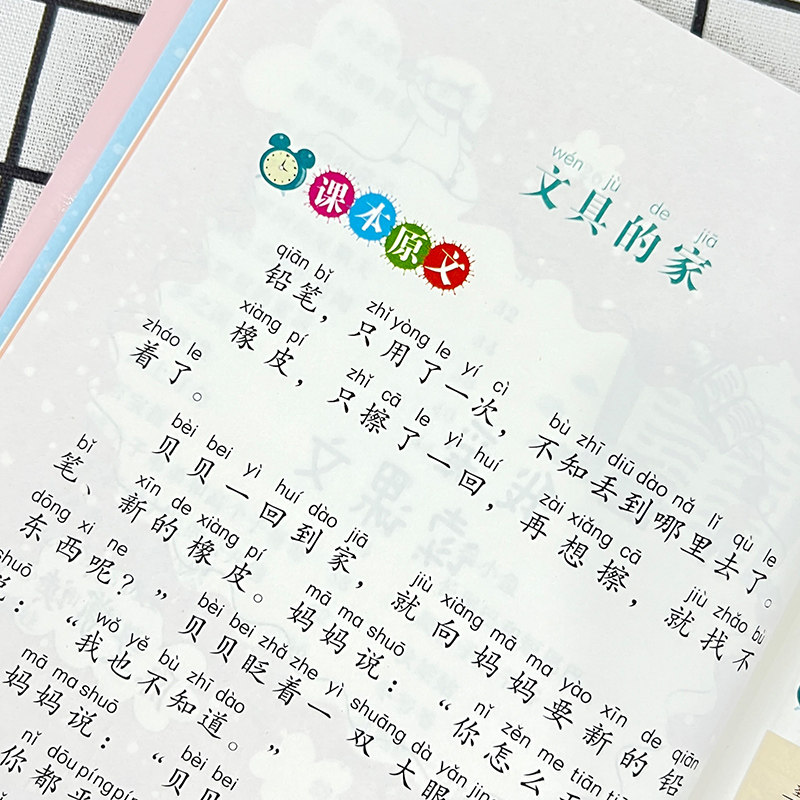 wén jù de jiā
文具的家
课本原文
qiān bǐ zhǐ yòng le yí cì bù zhī diū dào nǎ lǐ qù le
铅笔，只用了一次，不知丢到哪里去了。
xiàng pí zhǐ cā le yì huí zài xiǎng cā jiù zhǎo bù
橡皮，只擦了一回，再想擦，就找不
zháo le
着了。
bèi bei yì huí dào jiā jiù xiàng mā ma yào xīn de qiān
贝贝一回到家，就向妈妈要新的铅
bǐ xīn de xiàng pí mā ma shuō nǐ zěn me tiān
笔、新的橡皮。妈妈说：“你怎么
dōng xi ne bèi bei zhǎ zhe yì shuāng dà yǎn jing
东西呢？”贝贝眨着一双大眼
shuō wǒ yě bù zhī dào
说：“我也不知道。”
mā ma shuō bèi bei
妈妈说：“贝贝
nǐ dōu píng píng
你都